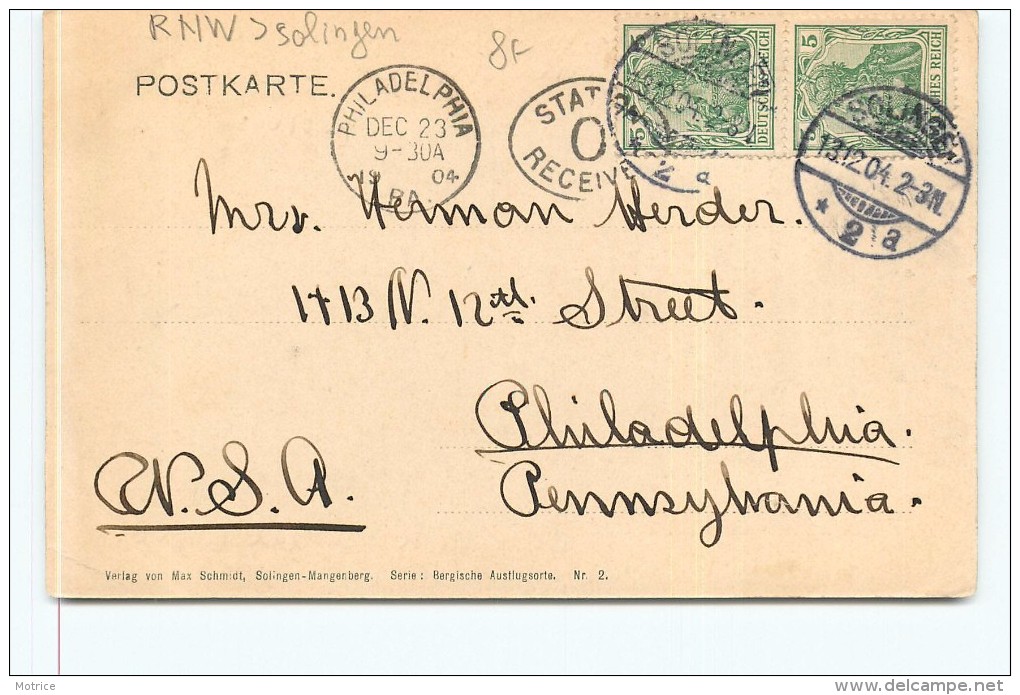 RNW > Solingen
8F
POSTKARTE.
PHILADELPHIA
DEC 23
9-30A
19 04
PA.
STAT
O
RECEIVE
5
DEUTSCHES REICH
5
DEUTSCHES REICH
SOLINGEN
13.12.04. 2-3N.
* 2 a
SOLINGEN
13.12.04. 2-3N.
* 2 a
Mrs. Herman Herder.
1413 N. 12th. Street.
Philadelphia.
Pennsylvania.
U.S.A.
Verlag von Max Schmidt, Solingen-Mangenberg. Serie: Bergische Ausflugsorte. Nr. 2.
Motrice
www.delcampe.net